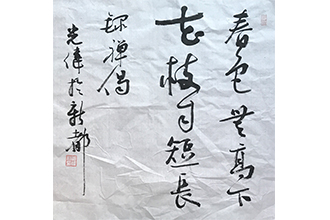 春色無高下
花枝自短長
錄禪偈
光偉於新都